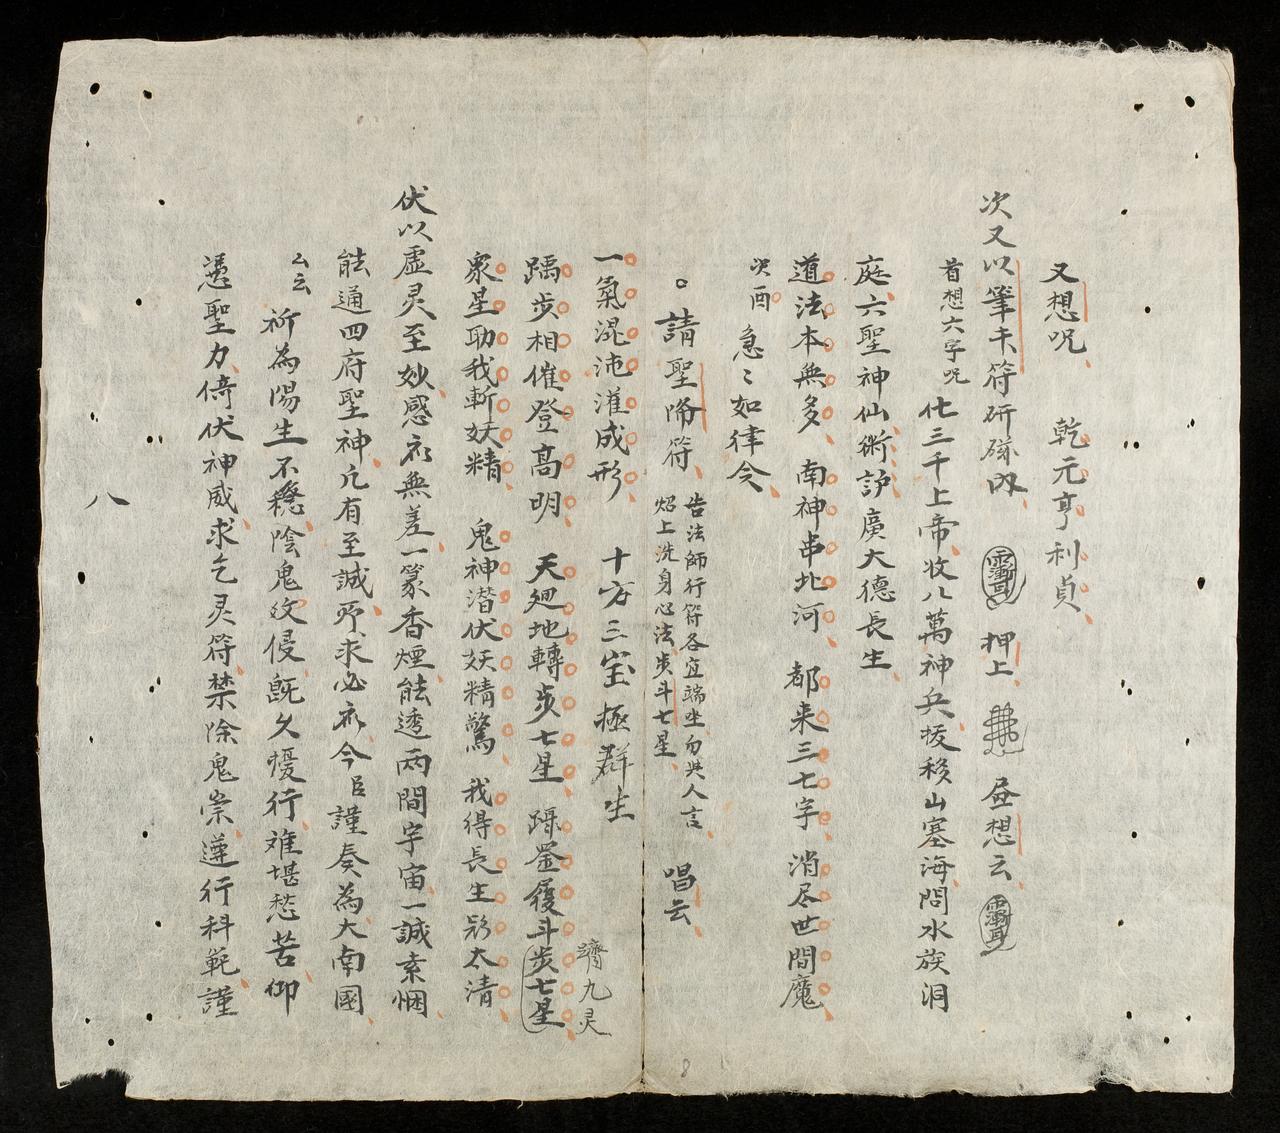 又想呪 乾元亨利貞
次又以筆 符研 内 押上 昼想云
首想六字呪 化三千上帝收八萬神兵拔移山塞海問水族洞
庭六聖神仙術訪廣大德長生
道法本無多 南神串北河 都来三七字 消尽世間魔
次酉 急〻如律令
請聖降符 告法師行符各宜端坐勿共人言
焰上洗身心法步斗七星 唱云
一氣混沌灌成形 十方三宝極群生
踽步相催登高明 天廻地轉步七星 躡罡履斗步七星
躋九灵
衆星助我斬妖精 鬼神潜伏妖精驚 我得長生 太清
伏以虛灵至妙感 無差一篆香煙能透兩間宇宙一誠素悃
能通四府聖神凢有至誠所求必 今臣謹奏為大南國
厶云 祈為陽生不穩陰鬼 侵既久擾行难堪愁苦仰
憑聖力倚伏神威求乞灵符禁除鬼祟遵行科範謹
八